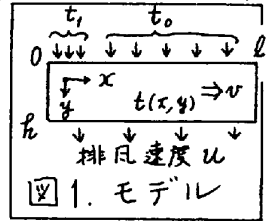 t₁ t₀
0 l
x
y t(x,y) ⇒v
h
排風速度 u
図1. モデル